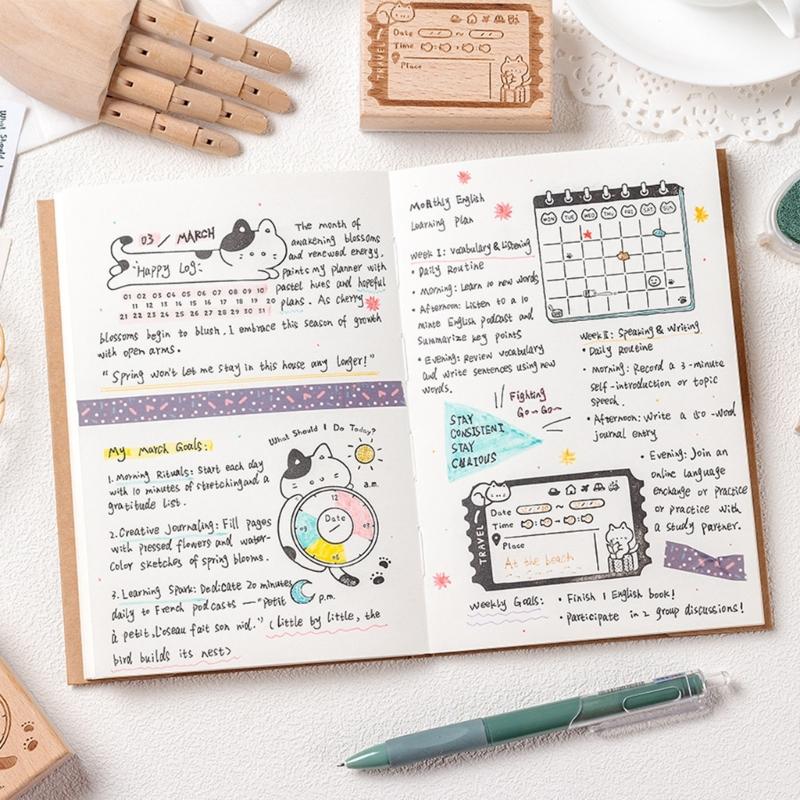 TRAVEL
Date ~
Time
Place
03 / MARCH
Happy Log:
01 02 03 04 05 06 07 08 09 10
11 12 13 14 15 16 17 18 19 20
21 22 23 24 25 26 27 28 29 30 31
The month of
awakening blossoms
and renewed energy,
paints my planner with
pastel hues and hopeful
plans. As cherry
blossoms begin to blush, I embrace this season of growth
with open arms.
"Spring won't let me stay in this house any longer!"
My March Goals:
1. Morning Rituals: Start each day
with 10 minutes of stretching and a
gratitude list.
2. Creative Journaling: Fill pages
with pressed flowers and water-
color sketches of spring blooms.
3. Learning Spark: Dedicate 20 minutes
daily to French podcasts — "petit
à petit, l'oseau fait son nid." (little by little, the
bird builds its nest>
What Should I Do Today?
a.m.
12
Date
03
06
09
p.m.
Monthly English
Learning Plan
Week I: Vocabulary & Listening
• Daily Routine
• Morning: Learn 10 new words
• Afternoon: Listen to a 10
minte English podcast and
summarize key points
• Evening: Review vocabulary
and write sentences using new
words.
MON TUE WED THU FRI SAT SUN
Week II: Speaking & Writing
• Daily Routine
• Morning: Record a 3-minute
self-introduction or topic
speech.
• Afternoon: Write a 150-word
journal entry
• Evening: Join an
online language
exchange or practice
or practice with
a study partner.
STAY
CONSISTENT
STAY
CURIOUS
Fighting
Go~Go~
TRAVEL
Date ~
Time
Place
At the beach
Weekly Goals:
• Finish 1 English book!
• Participate in 2 group discussions!